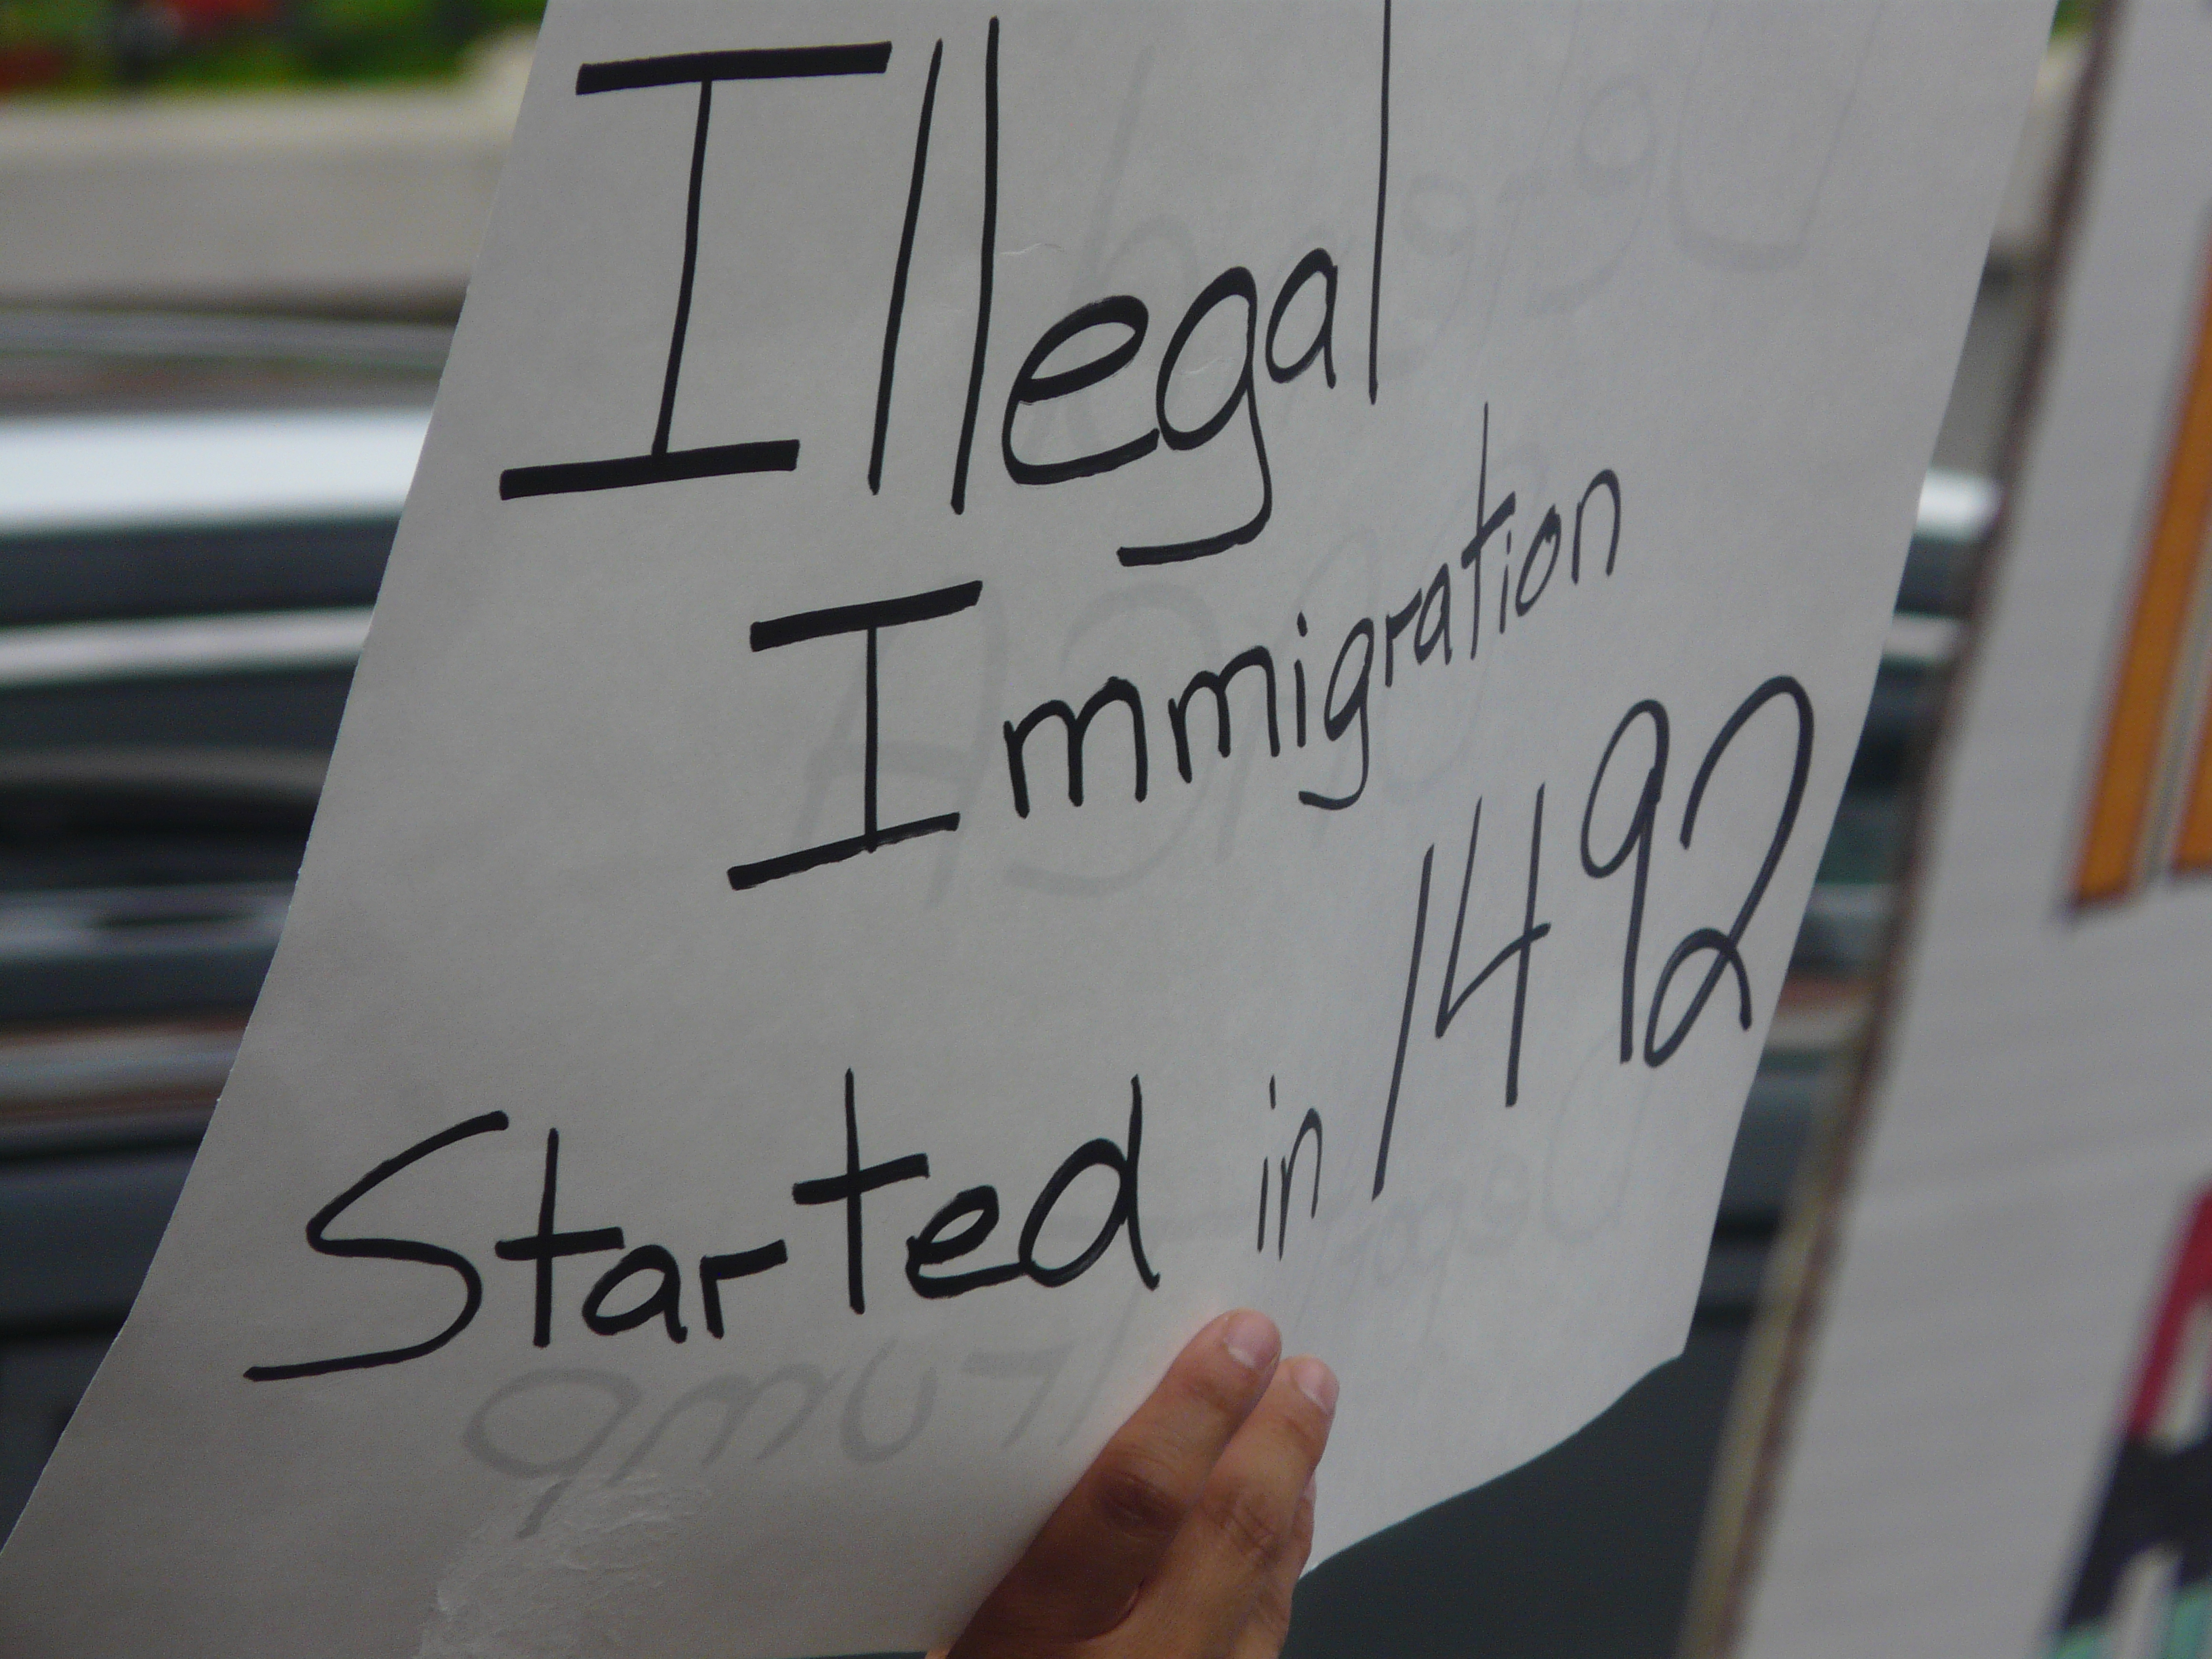 Illegal
Immigration
Started in 1492